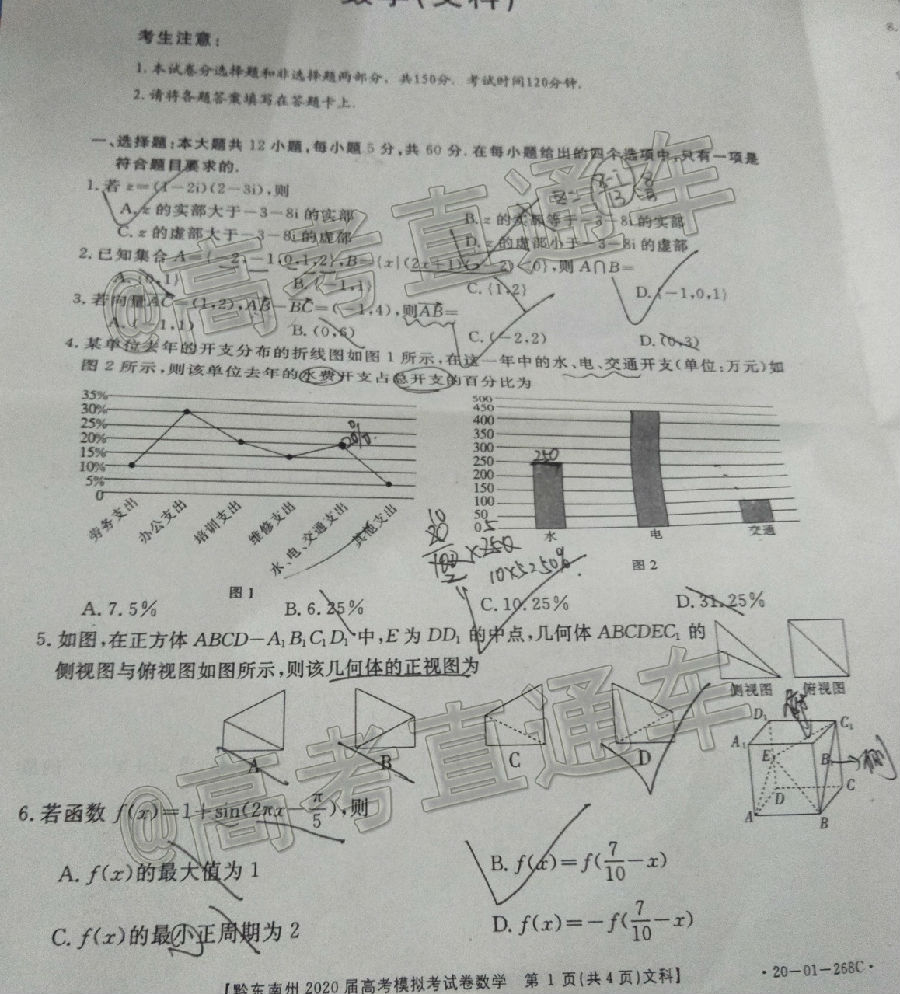 数学(文科)
8.
考生注意:
1.本试卷分选择题和非选择题两部分。共150分。考试时间120分钟。
2.请将各题答案填写在答题卡上。
一、选择题:本大题共12小题,每小题5分,共60分.在每小题给出的四个选项中,只有一项是
符合题目要求的.
1.若z=(1-2i)(2-3i),则
A.z的实部大于-3-8i的实部
B.z的实部等于-3-8i的实部
C.z的虚部大于-3-8i的虚部
D.z的虚部小于-3-8i的虚部
2.已知集合A={-2,-1,0,1,2},B={x|(2x+1)(x-2)<0},则A∩B=
A.{0,1}
B.{-1,1}
C.{1,2}
D.{-1,0,1}
3.若向量AC=(1,2),AB-BC=(-1,4),则AB=
A.(-1,1)
B.(0,6)
C.(-2,2)
D.(0,3)
4.某单位去年的开支分布的折线图如图1所示,在这一年中的水、电、交通开支(单位:万元)如
图2所示,则该单位去年的水费开支占总开支的百分比为
35%
30%
25%
20%
15%
10%
5%
0
劳务支出
办公支出
培训支出
维修支出
水、电、交通支出
其他支出
20%
图1
500
450
400
350
300
250
200
150
100
50
0
250
水
电
交通
图2
×250
10×5250%
A.7.5%
B.6.25%
C.10.25%
D.31.25%
5.如图,在正方体ABCD-A₁B₁C₁D₁中,E为DD₁的中点,几何体ABCDEC₁的
侧视图与俯视图如图所示,则该几何体的正视图为
侧视图
俯视图
A
B
C
D
D₁
C₁
A₁
B₁
E
D
C
A
B
6.若函数f(x)=1+sin(2πx-π/5),则
A.f(x)的最大值为1
B.f(x)=f(7/10-x)
C.f(x)的最小正周期为2
D.f(x)=-f(7/10-x)
【黔东南州2020届高考模拟考试卷数学 第1页(共4页)文科】
·20-01-268C·
@高考直通车
@高考直通车